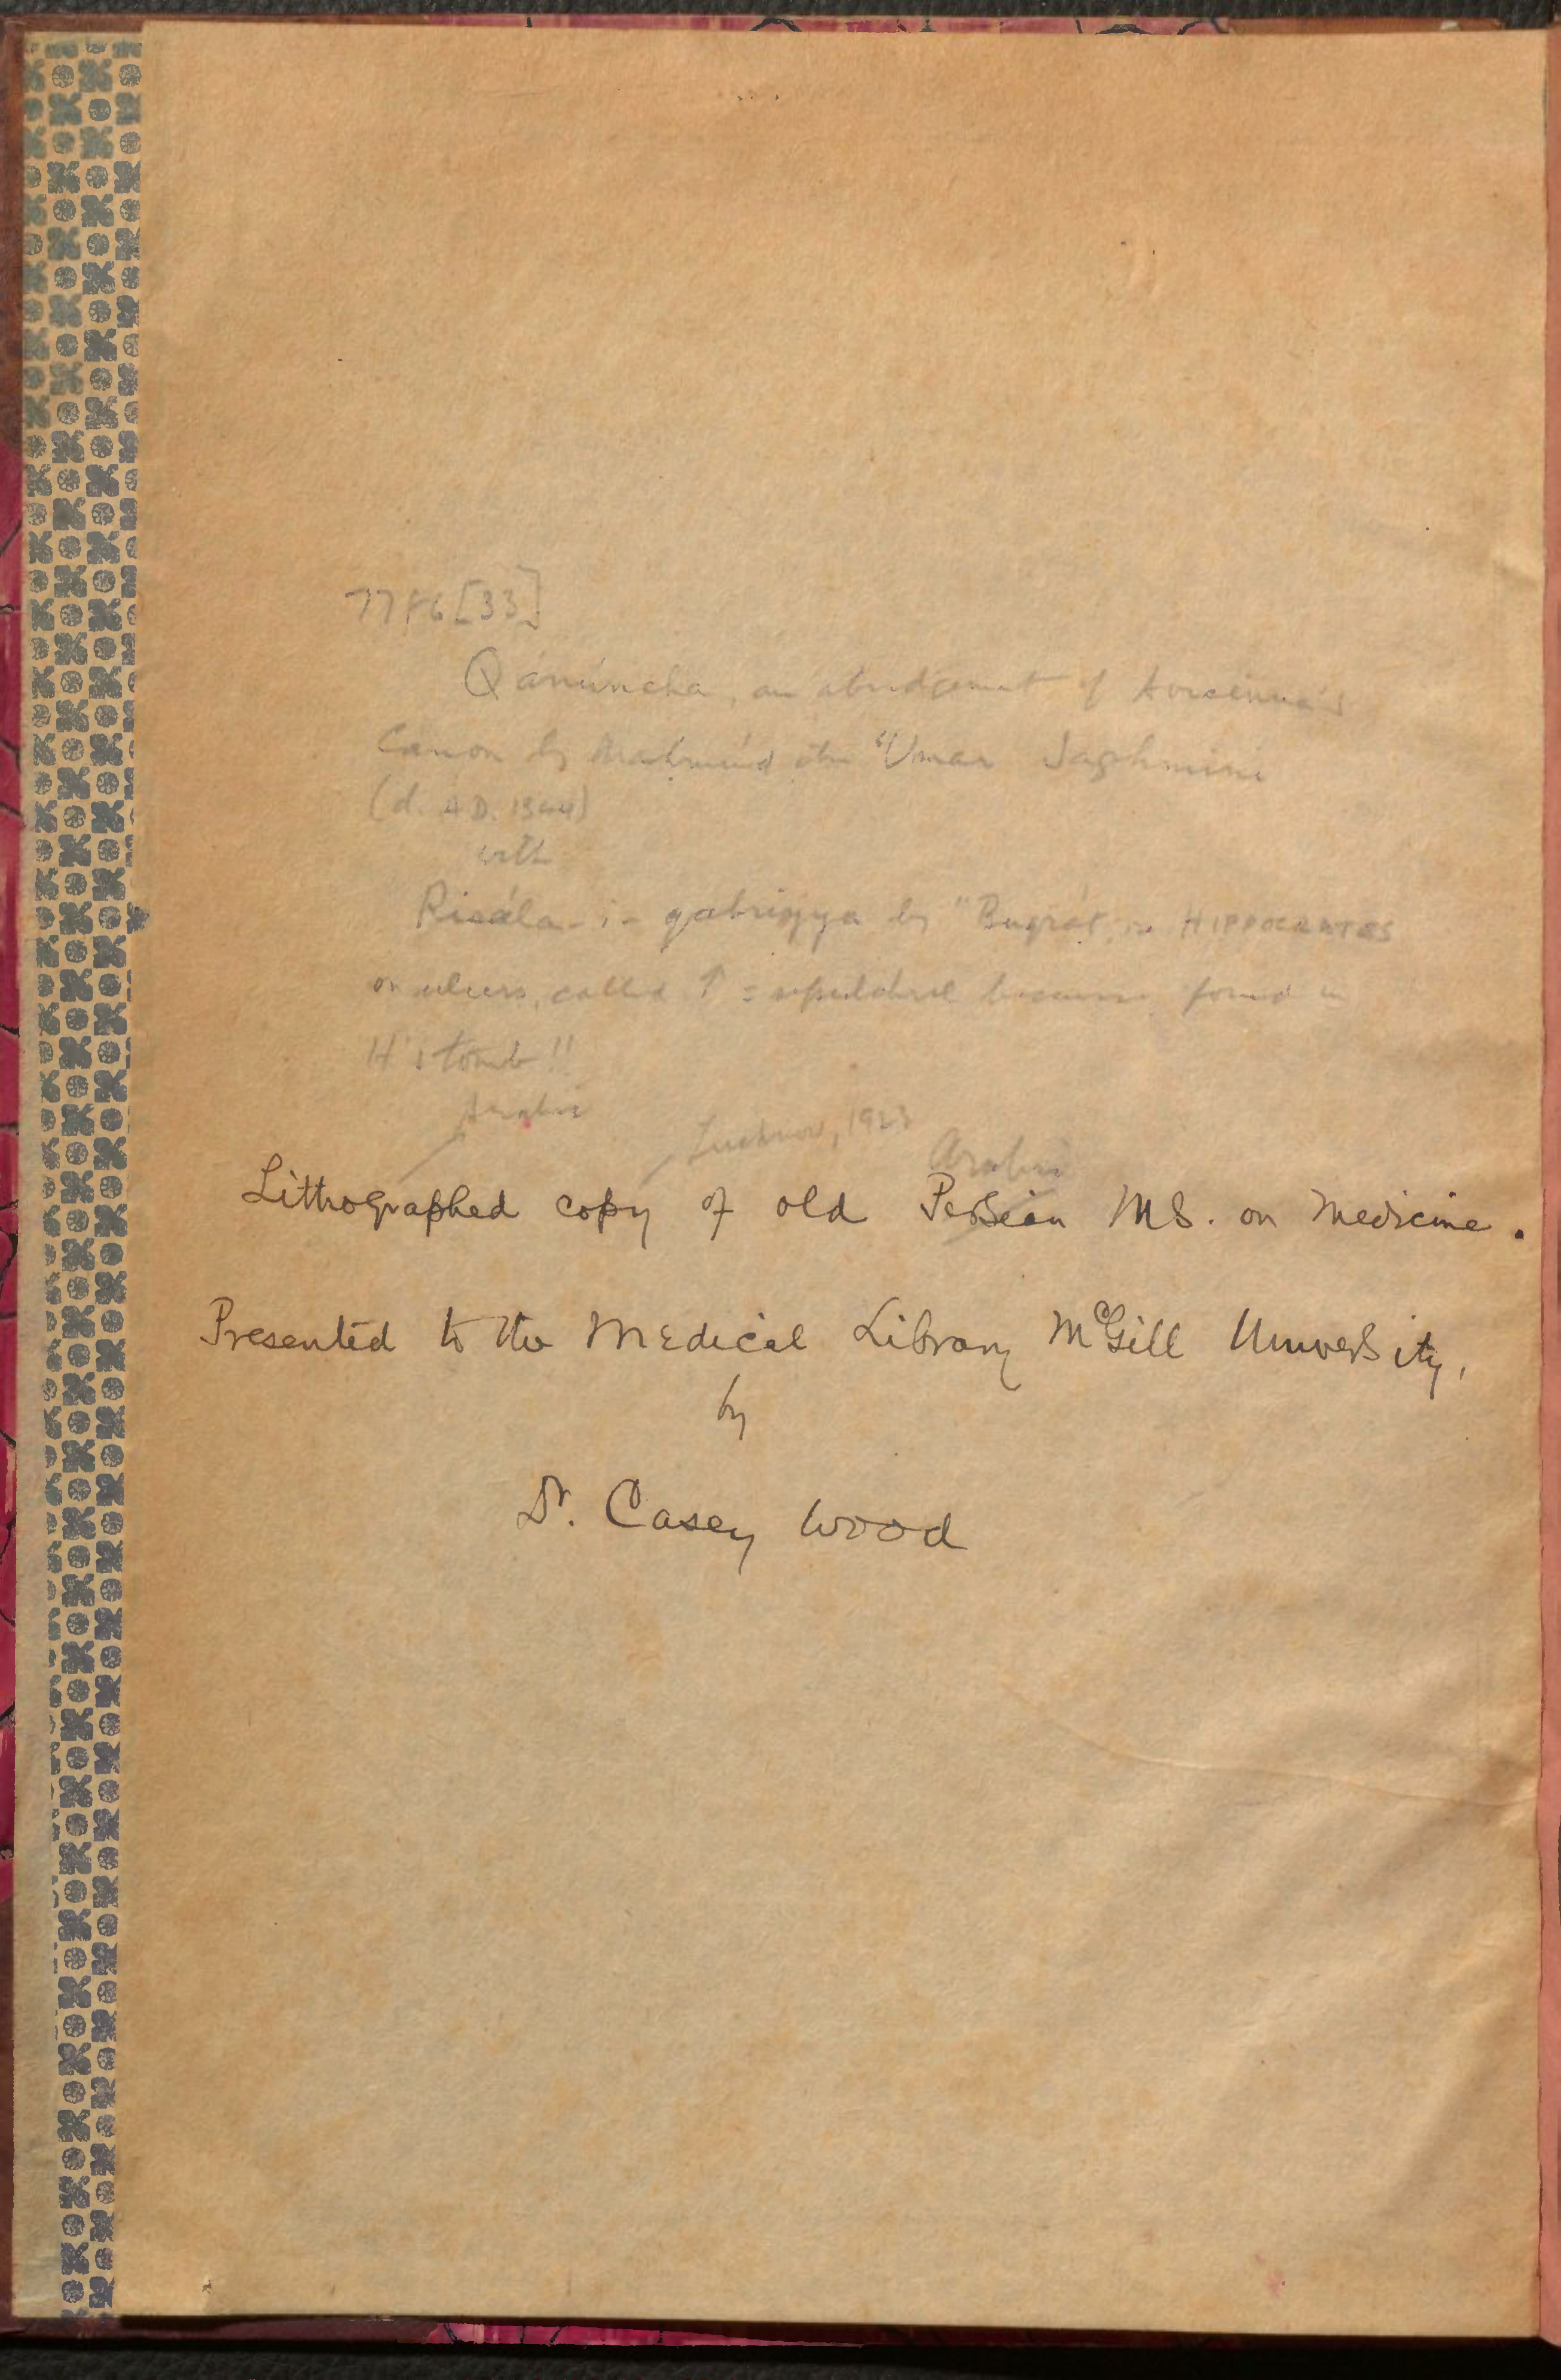 7786 [33]
Qánúncha, an abridgement of Avicenna's
Canon by Mahmúd ibn ʿUmar Jaghmíní
(d. A.D. 1344)
with
Risála-i-qabriyya by "Buqrát, or HIPPOCRATES
on ulcers, called ↑ = sepulchral because found in
H's tomb!!
Arabic
Lucknow, 192
Arabic
Lithographed copy of old Persian MS. on Medicine.
Presented to the Medical Library McGill University,
by
Dr. Casey Wood